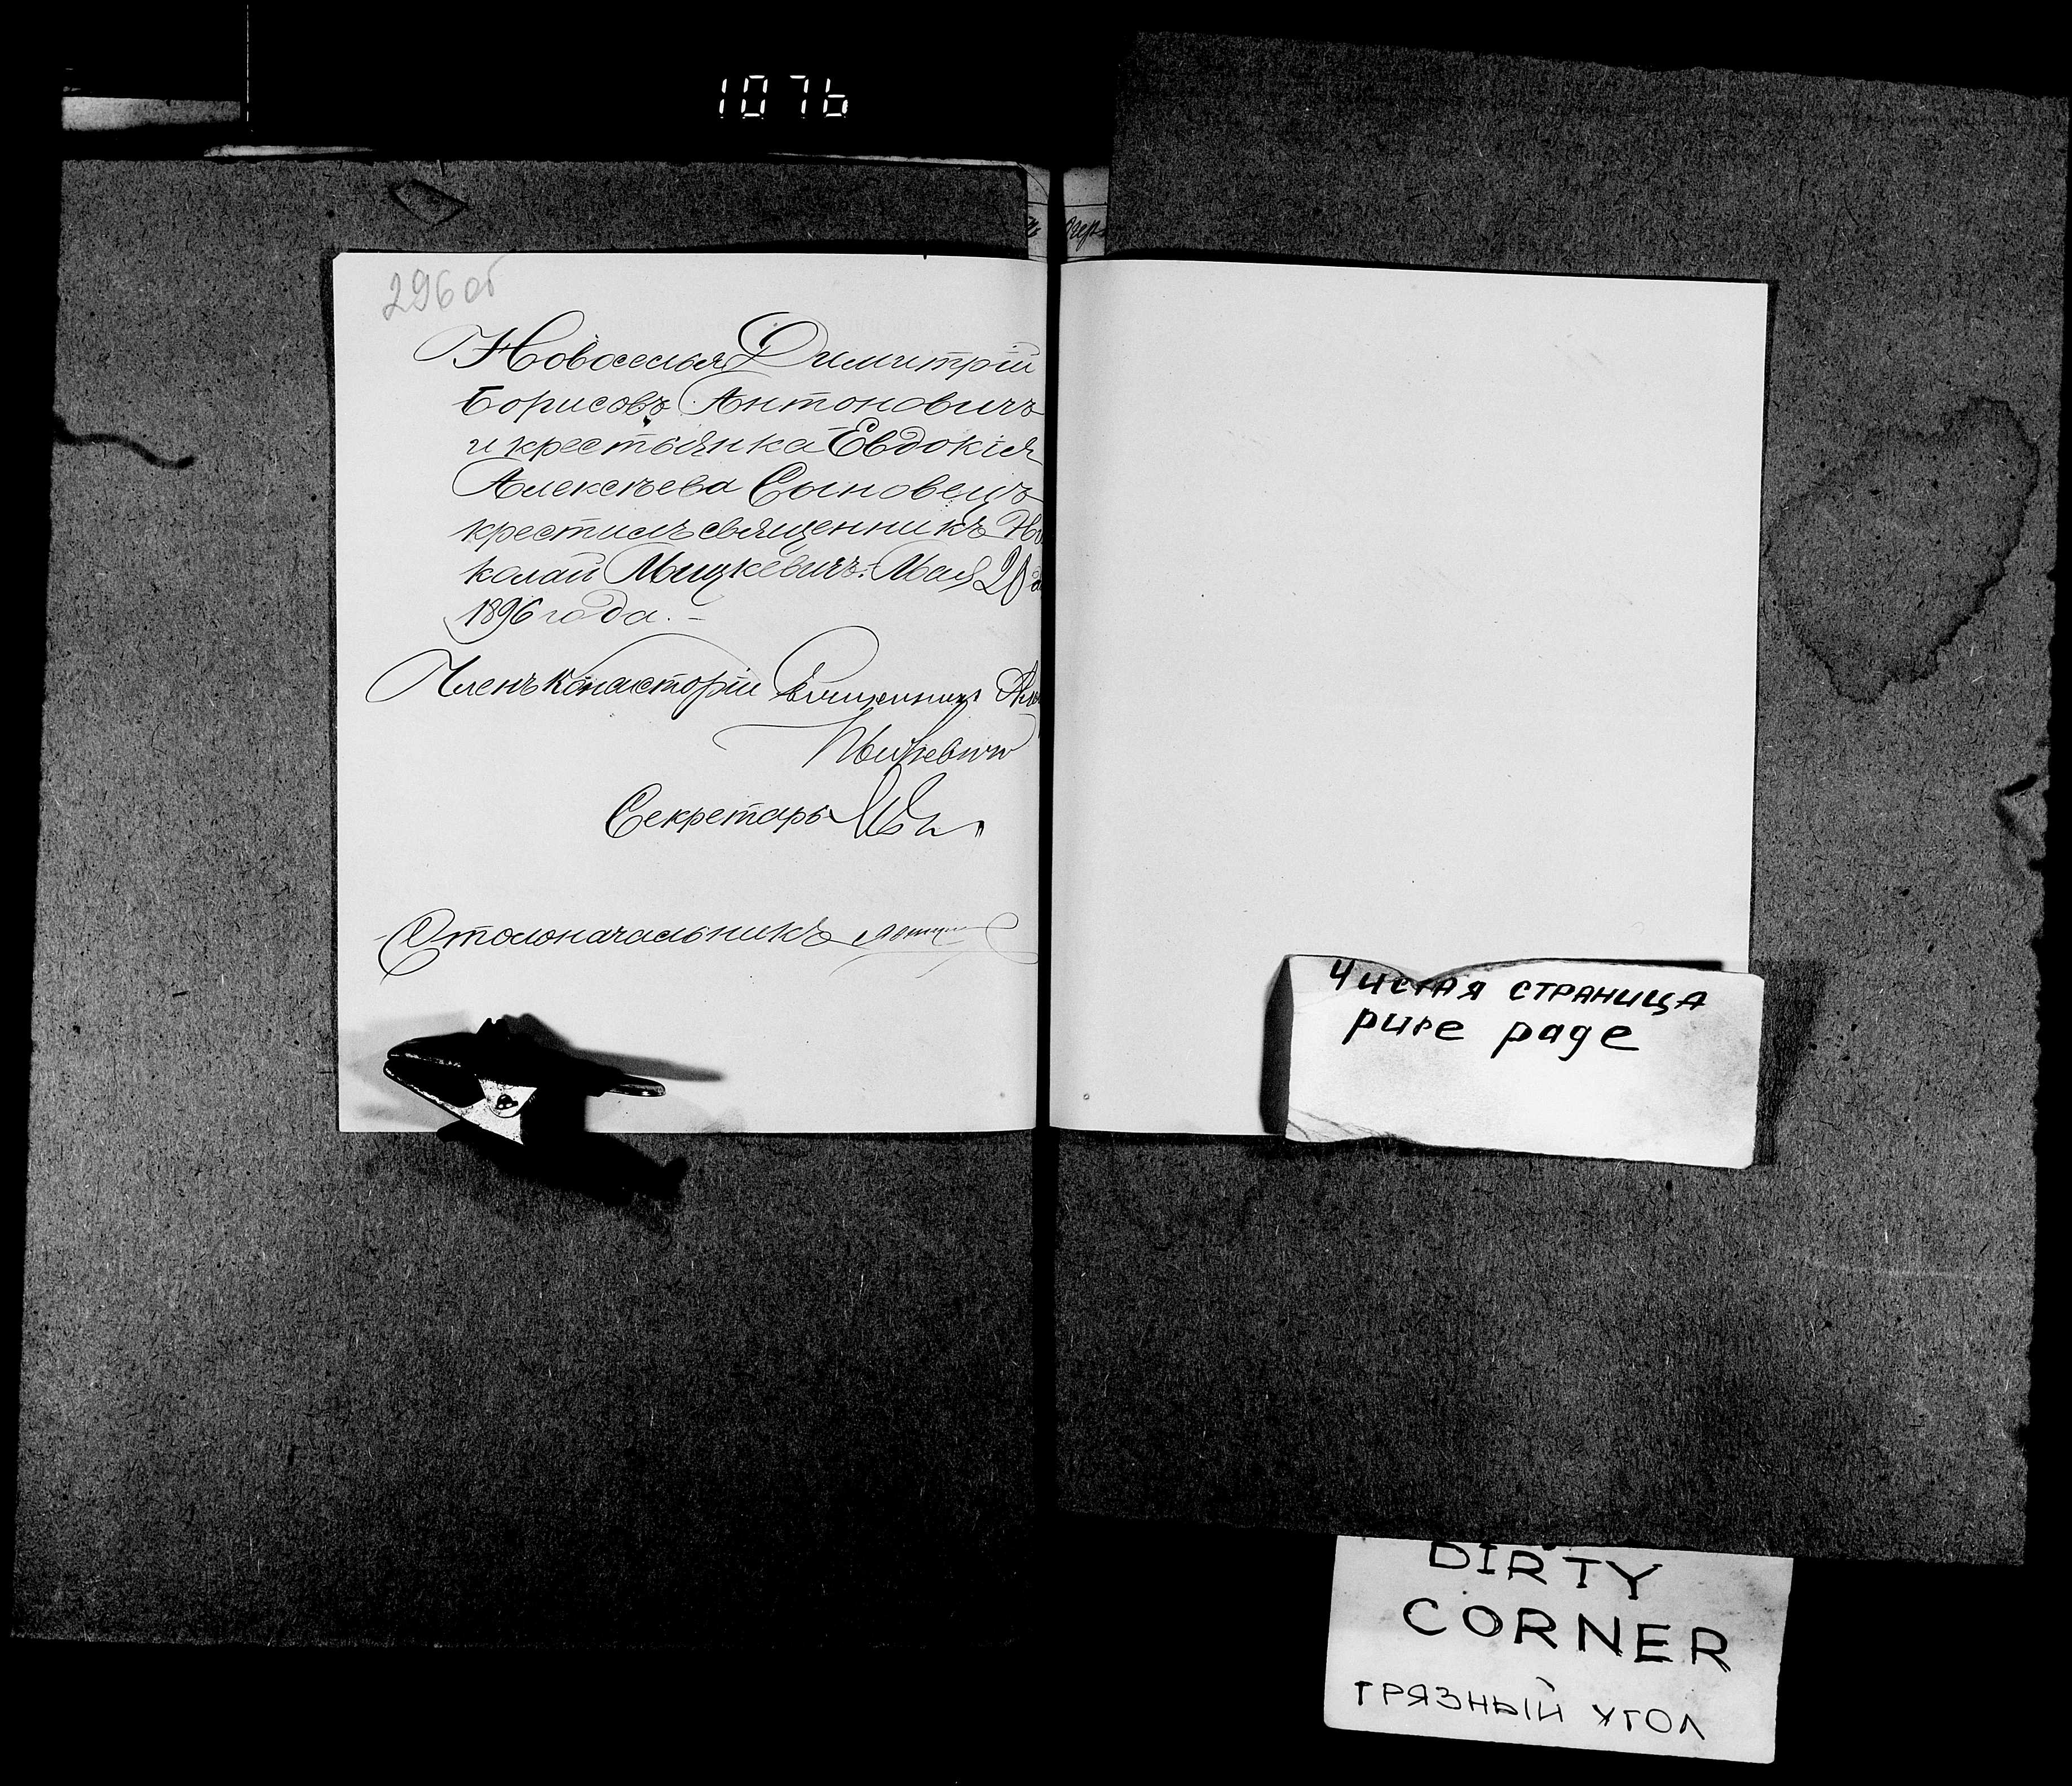 1076
296 об
Новоселья Димитрій
Борисовъ Антоновичъ
и крестьянка Евдокія
Алексѣева Сыновецъ
крестилъ священникъ Ни
колай Мицкевичъ. Мая 20
1896 года. -
Членъ Консисторіи Священникъ
Секретарь
Столоначальникъ
Чистая страница
pure page
DIRTY
CORNER
грязный угол